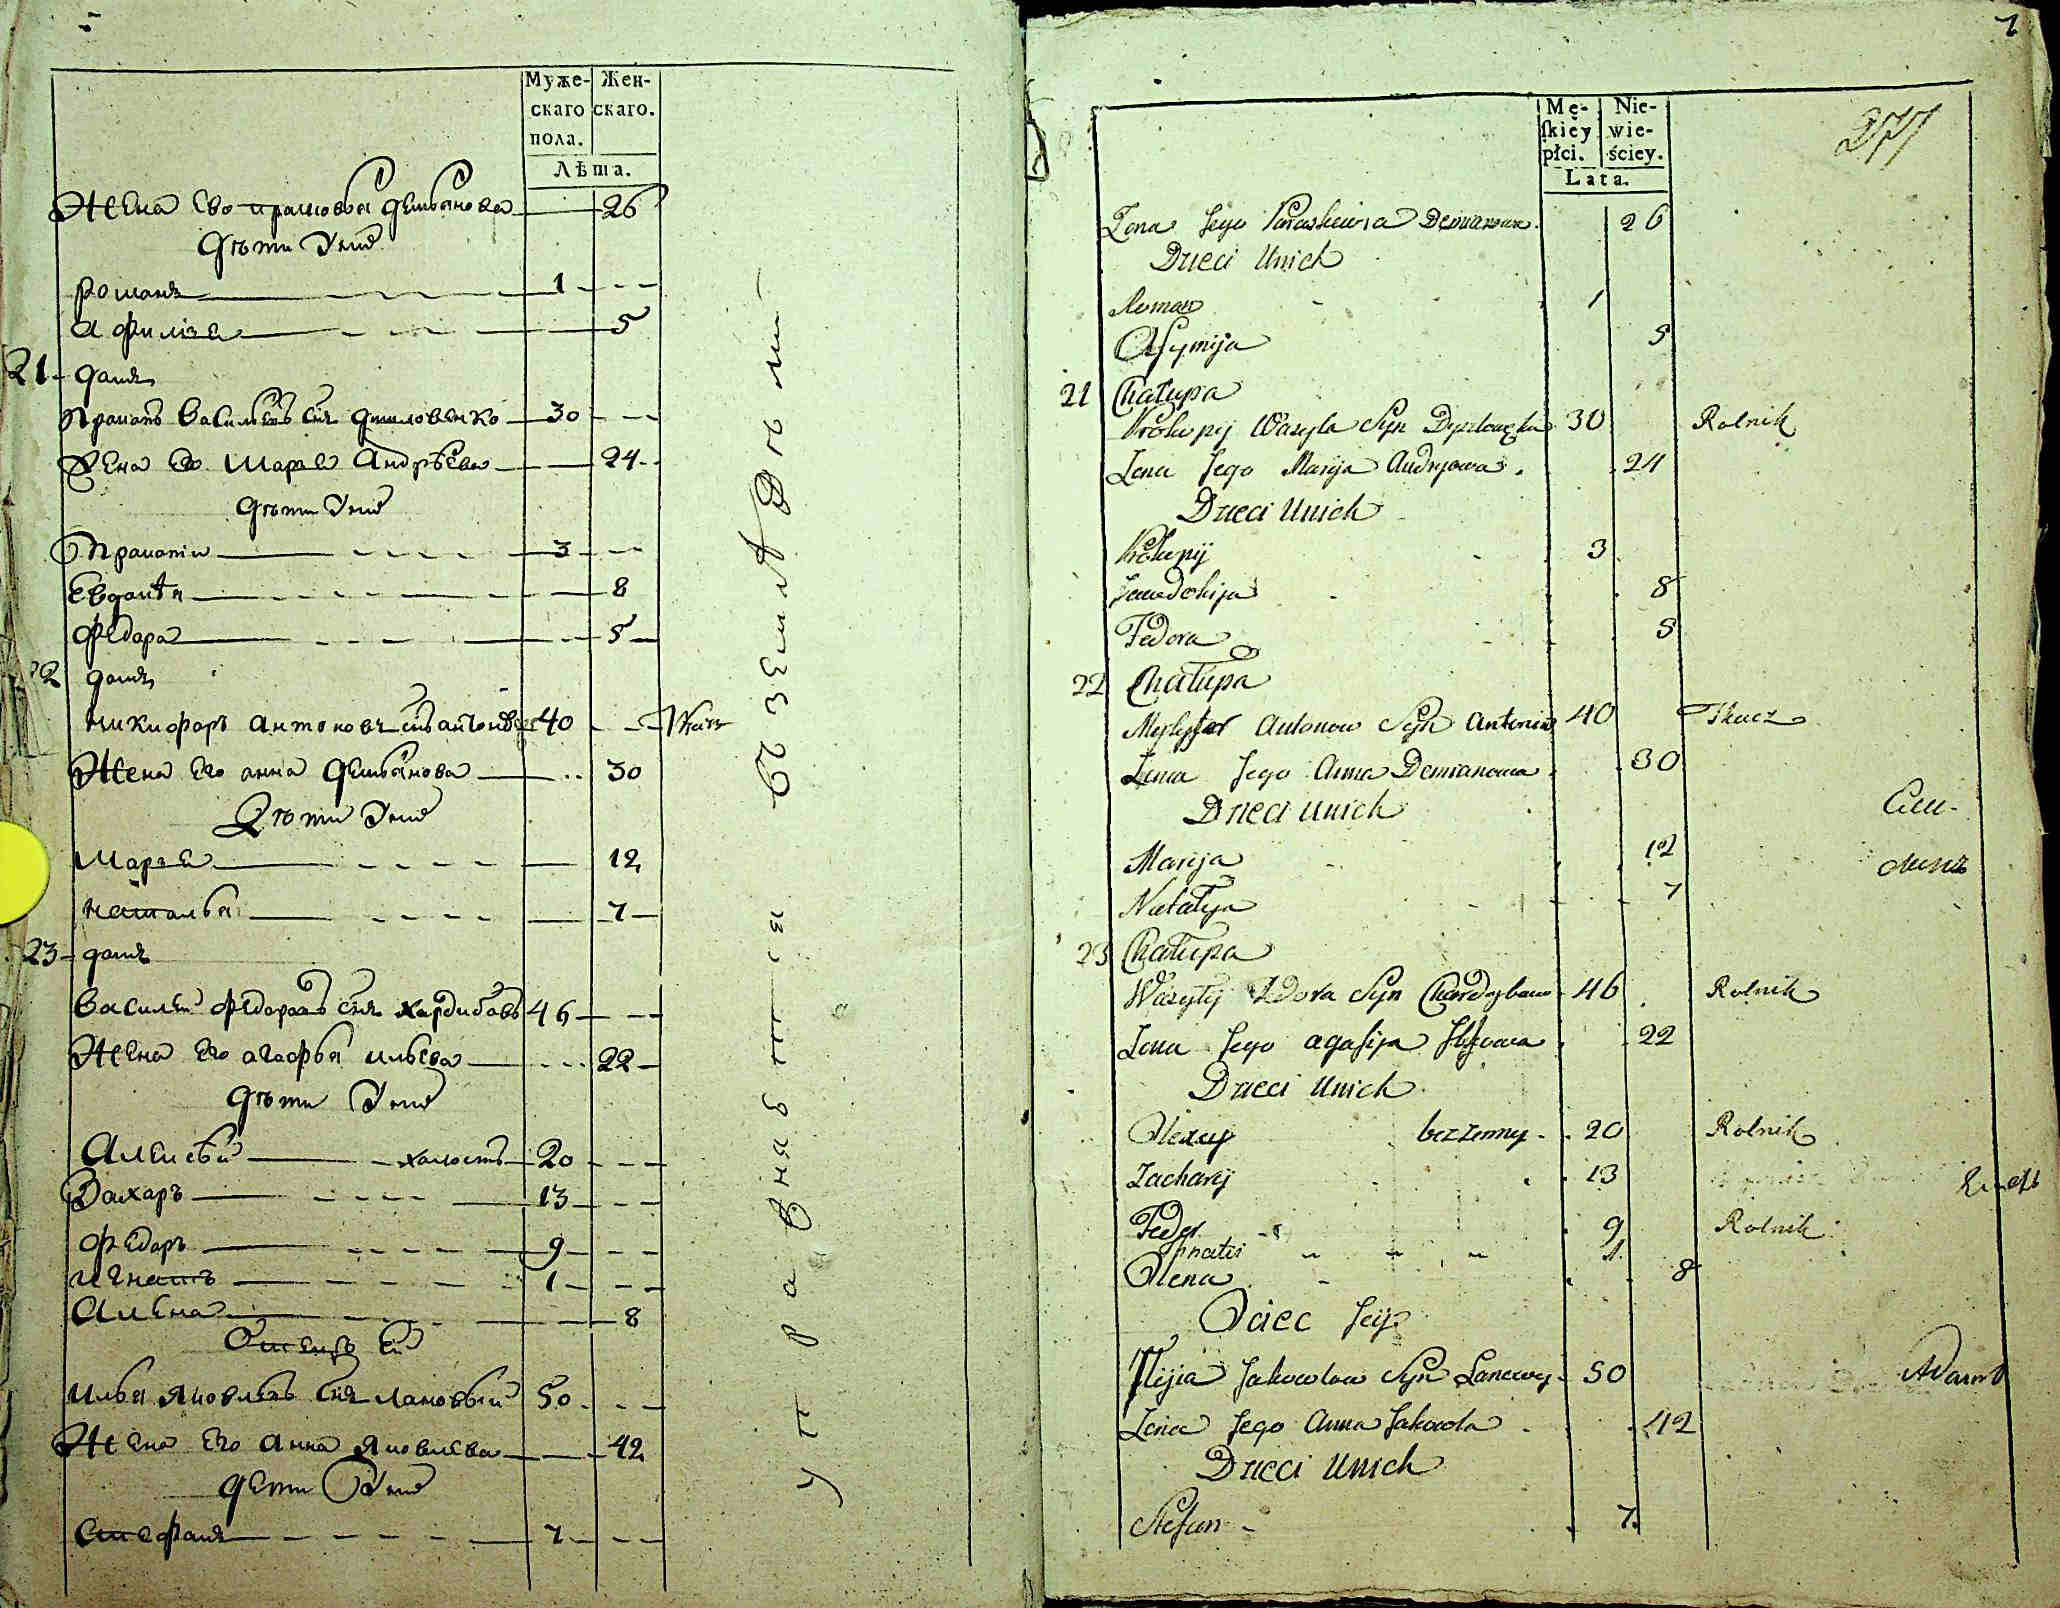 Муже-
скаго
пола.
Жен-
скаго.
Лѣта.
Жена Ево Демьянова 26
Дѣти У них
Романъ 1
Афимiя 5
21 домъ
Васильевъ снъ 30
Жена Ево Мария Андрѣева 24
Дѣти У них
Пракопiи 3
Евдокѣя 8
Федора 5
22 домъ
Никифоръ Антоновъ снъ 40 Ткачь
Жена Его Анна Демьянова 30
Дѣти У них
Мария 12
Наталья 7
23 домъ
Василей Федоровъ снъ Хардибовъ 46
Жена Его Агафья Ильева 22
Дѣти У них
Алексѣй холостъ 20
Захаръ 13
Федоръ 9
Игнатъ 1
Алена 8
Отецъ Ей
Илья Яковлевъ снъ Лановый 50
Жена Его Анна Яковлева 42
Дети У них
Стефанъ 7
277
Mę-
ſkiey
płci.
Nie-
wie-
ściey.
Lata.
Żona Jego Paraskiewia Demianowa 26
Dzieci Unich
Roman 1
Afymija 5
21 Chałupa
Prokupij Wasyla Syn 30 Rolnik
Żona Jego Marija Andryowa 24
Dzieci Unich
Prokupij 3
Jewdokija 8
Fedora 5
22 Chałupa
Antonow Syn 40 Tkacz
Żona Jego Anna Demianowa 30
Dzieci Unich
Marija 12
Natalya 7
23 Chałupa
Wasylij Fedora Syn 46 Rolnik
Żona Jego Agafija 22
Dzieci Unich
Olexey bezżenny 20 Rolnik
Zacharij 13
Feder 9 Rolnik
Ihnatii 1
Olena 8
Ociec Jeij
Ilijia Jakowlow Syn Lanowy 50
Żona Jego Anna Jakowla 42
Dzieci Unich
Stefan 7